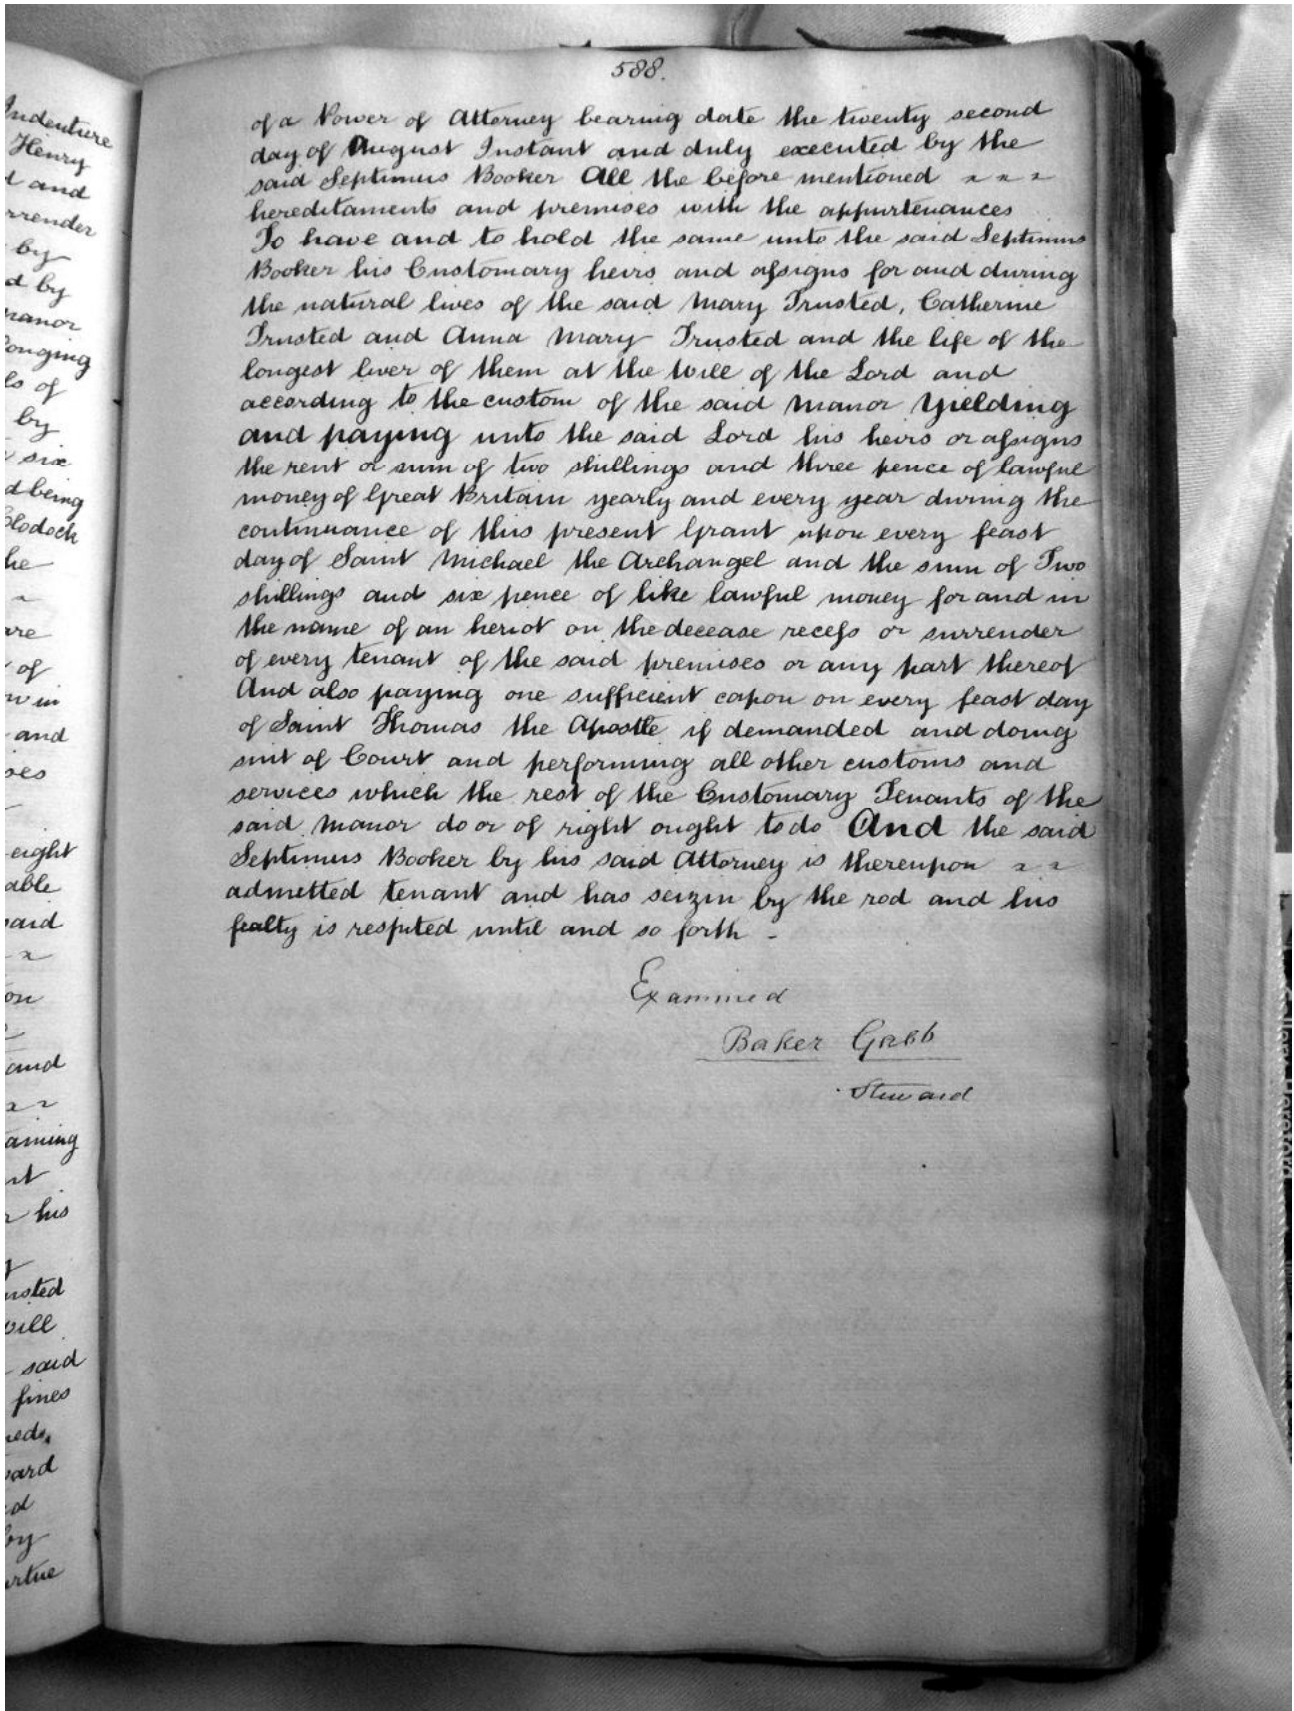 Indenture
Henry
and
by
by
of
by
six
being
Clodock
of
in
and
eight
able
said
and
his
said
fines
by
588.
of a Power of Attorney bearing date the twenty second
day of August Instant and duly executed by the
said Septimus Booker All the before mentioned ~ ~ ~
hereditaments and premises with the appurtenances
To have and to hold the same unto the said Septimus
Booker his Customary heirs and assigns for and during
the natural lives of the said Mary Trusted, Catherine
Trusted and Anna Mary Trusted and the life of the
longest liver of them at the Will of the Lord and
according to the custom of the said Manor Yielding
and paying unto the said Lord his heirs or assigns
the rent or sum of two shillings and three pence of lawful
money of Great Britain yearly and every year during the
continuance of this present Grant upon every feast
day of Saint Michael the Archangel and the sum of Two
shillings and six pence of like lawful money for and in
the name of an heriot on the decease recess or surrender
of every tenant of the said premises or any part thereof
And also paying one sufficient capon on every feast day
of Saint Thomas the Apostle if demanded and doing
suit of Court and performing all other customs and
services which the rest of the Customary Tenants of the
said Manor do or of right ought to do And the said
Septimus Booker by his said Attorney is thereupon ~ ~
admitted tenant and has seizin by the rod and his
fealty is respited until and so forth -
Examined
Baker Gabb
Steward